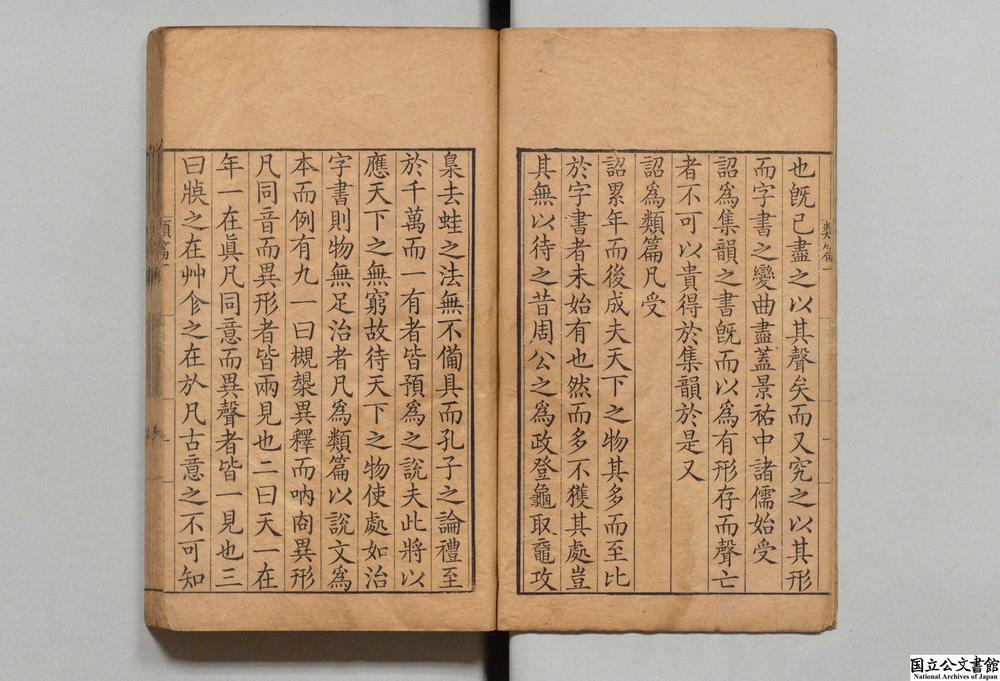 也旣已盡之以其聲矣而又究之以其形
而字書之變曲盡蓋景祐中諸儒始受
詔爲集韻之書旣而以爲有形存而聲亡
者不可以貴得於集韻於是又
詔爲類篇凡受
詔累年而後成夫天下之物其多而至比
於字書者未始有也然而多不獲其處豈
其無以待之昔周公之爲政登龜取黿攻
梟去蛙之法無不備具而孔子之論禮至
於千萬而一有者皆預爲之說夫此將以
應天下之無窮故待天下之物使處如治
字書則物無足治者凡爲類篇以說文爲
本而例有九一曰槻槼異釋而吶㕯異形
凡同音而異形者皆兩見也二曰天一在
年一在眞凡同意而異聲者皆一見也三
曰㹜之在艸㑹之在㫃凡古意之不可知
類篇一
国立公文書館
National Archives of Japan